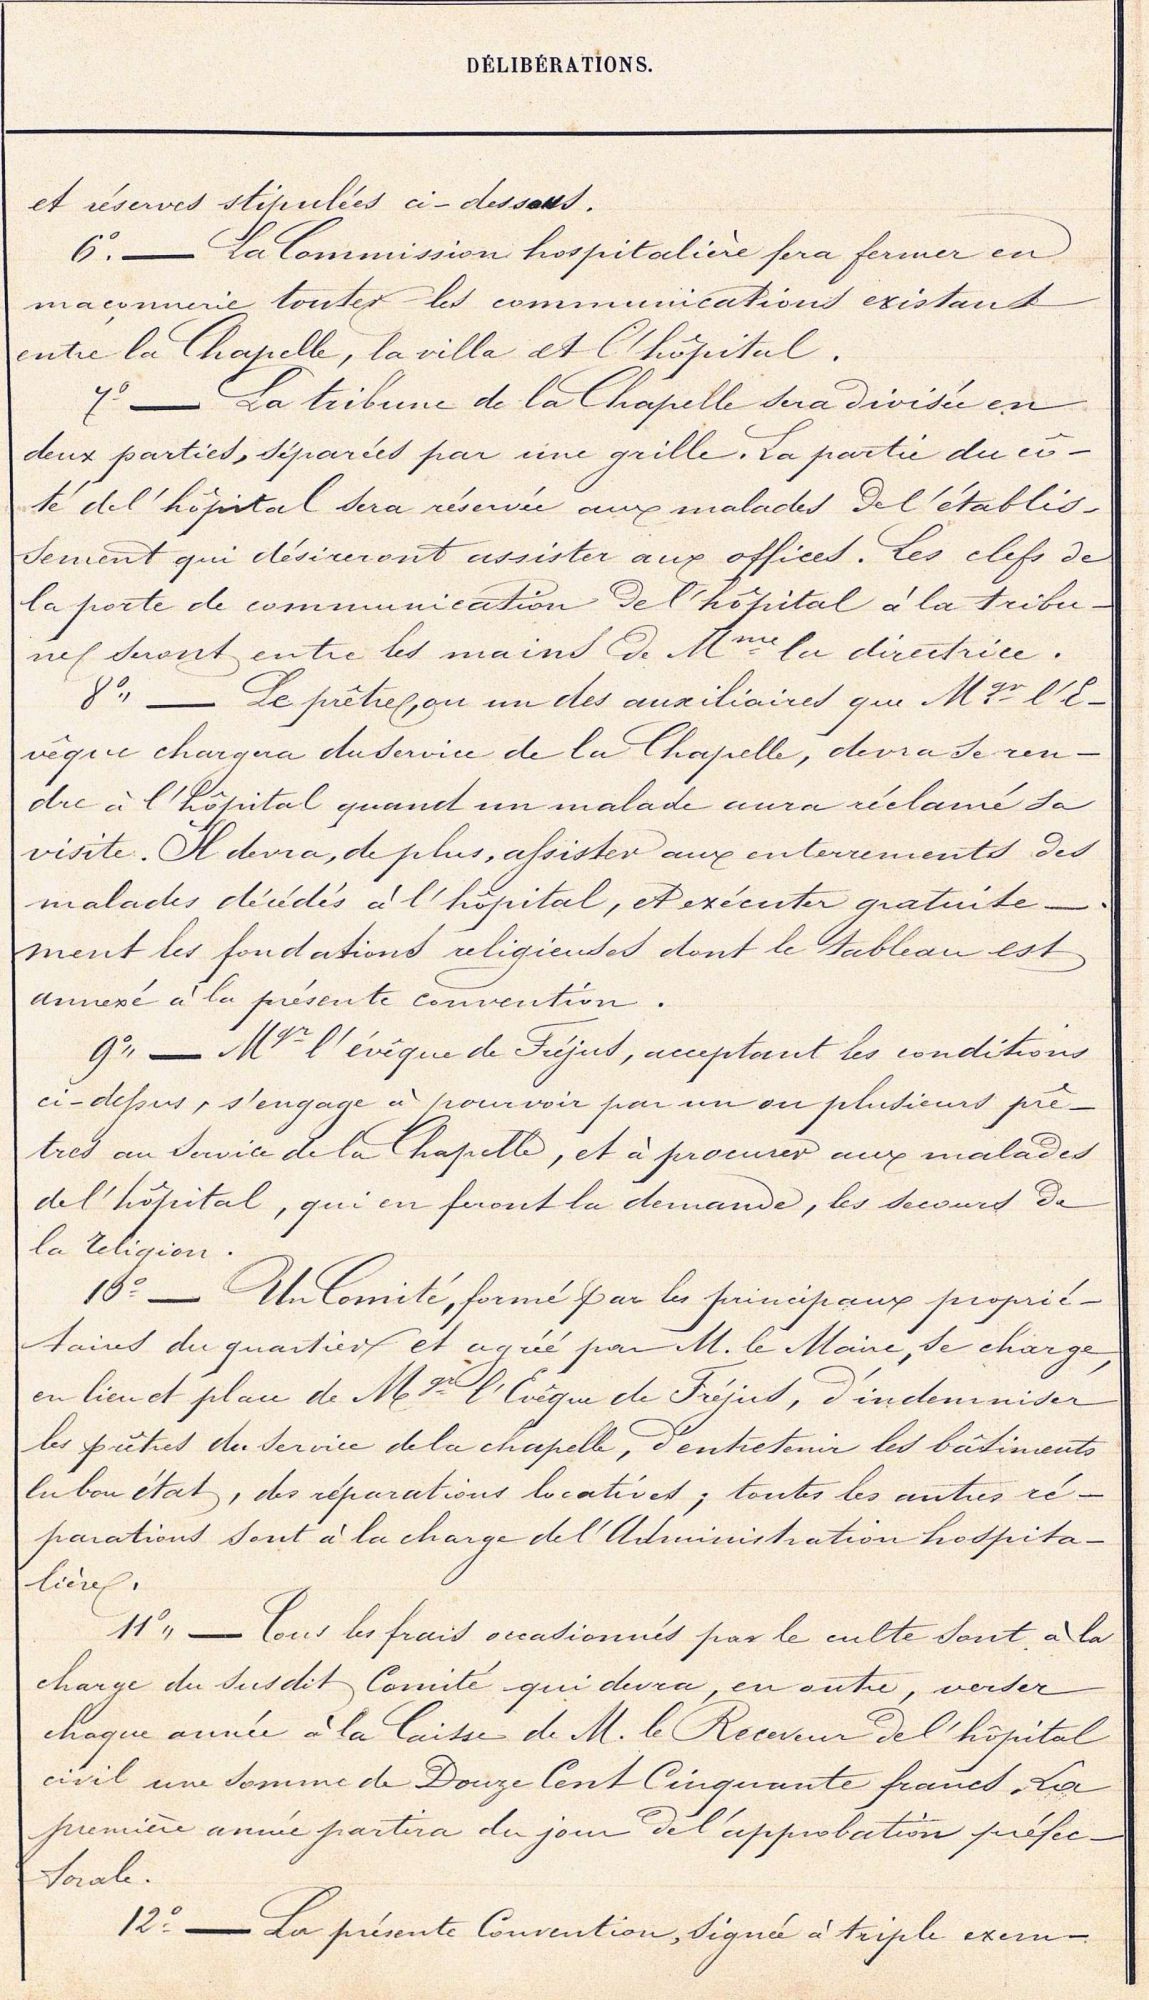 DÉLIBÉRATIONS.
et réserves stipulées ci-dessous.
6°. — La Commission hospitalière fera fermer en
maçonnerie toutes les communications existant
entre la Chapelle, la villa et l'hôpital.
7° — La tribune de la Chapelle sera divisée en
deux parties, séparées par une grille. La partie du cô-
té de l'hôpital sera réservée aux malades de l'établis-
sement qui désireront assister aux offices. Les clefs de
la porte de communication de l'hôpital à la tribu-
ne seront entre les mains de Mme la directrice.
8°,, — Le prêtre, ou un des auxiliaires que Mgr l'E-
vêque chargera du service de la Chapelle, devra se ren-
dre à l'hôpital quand un malade aura réclamé sa
visite. Il devra, de plus, assister aux enterrements des
malades décédés à l'hôpital, et exécuter gratuite-
ment les fondations religieuses dont le tableau est
annexé à la présente convention.
9°,, — Mgr l'évêque de Fréjus, acceptant les conditions
ci-dessus, s'engage à pourvoir par un ou plusieurs prê-
tres au service de la Chapelle, et à procurer aux malades
de l'hôpital, qui en feront la demande, les secours de
la religion.
10° — Un Comité, formé par les principaux proprié-
taires du quartier et agréé par M. le Maire, se charge,
en lieu et place de Mgr l'Evêque de Fréjus, d'indemniser
les prêtres du service de la chapelle, d'entretenir les bâtiments
en bon état, des réparations locatives; toutes les autres ré-
parations sont à la charge de l'Administration hospita-
lière.
11°,, — Tous les frais occasionnés par le culte sont à la
charge du susdit Comité qui devra, en outre, verser
chaque année à la Caisse de M. le Receveur de l'hôpital
civil une somme de Douze Cent Cinquante francs. La
première année partira du jour de l'approbation préfec-
torale.
12° — La présente Convention, signée à triple exem-